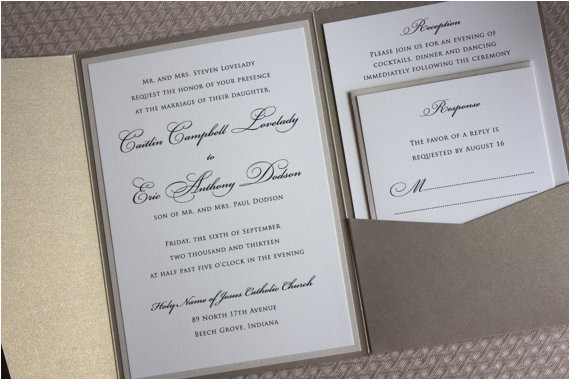 Mr. and Mrs. Steven Lovelady
request the honor of your presence
at the marriage of their daughter,
Caitlin Campbell Lovelady
to
Eric Anthony Dodson
son of Mr. and Mrs. Paul Dodson
Friday, the sixth of September
two thousand and thirteen
at half past five o'clock in the evening
Holy Name of Jesus Catholic Church
89 North 17th Avenue
Beech Grove, Indiana
Reception
Please join us for an evening of
cocktails, dinner and dancing
immediately following the ceremony
Response
The favor of a reply is
requested by August 16
M